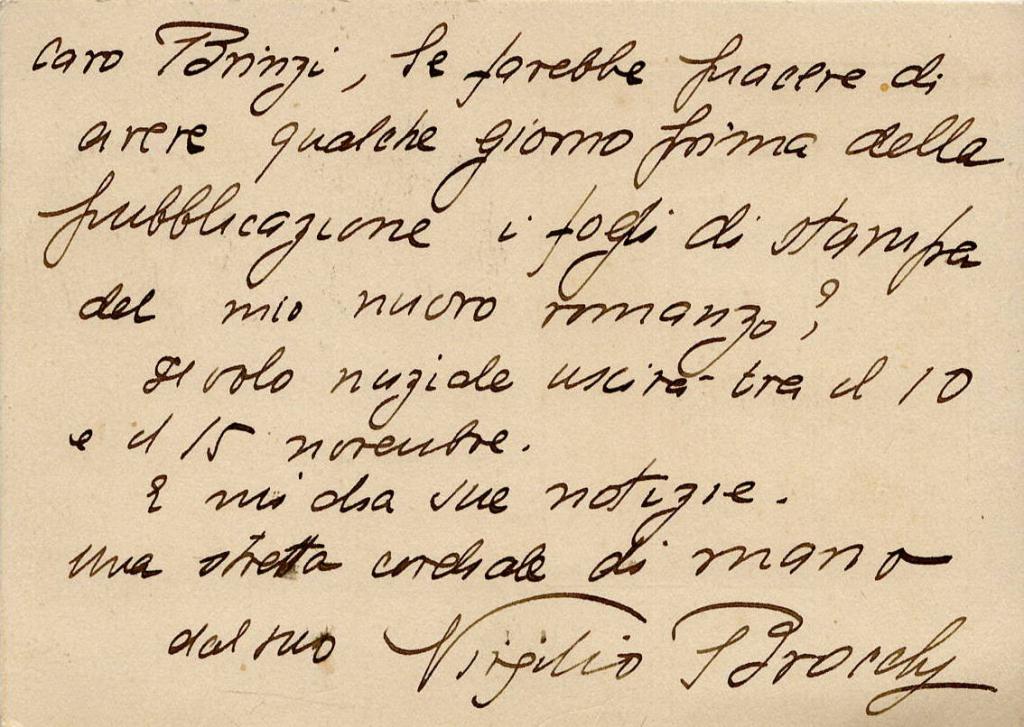 caro Brinzi, le farebbe piacere di
avere qualche giorno prima della
pubblicazione i fogli di stampa
del mio nuovo romanzo?
Il volo nuziale uscirà tra il 10
e il 15 novembre.
E mi dia sue notizie.
Una stretta cordiale di mano
dal suo Virgilio Brocchi